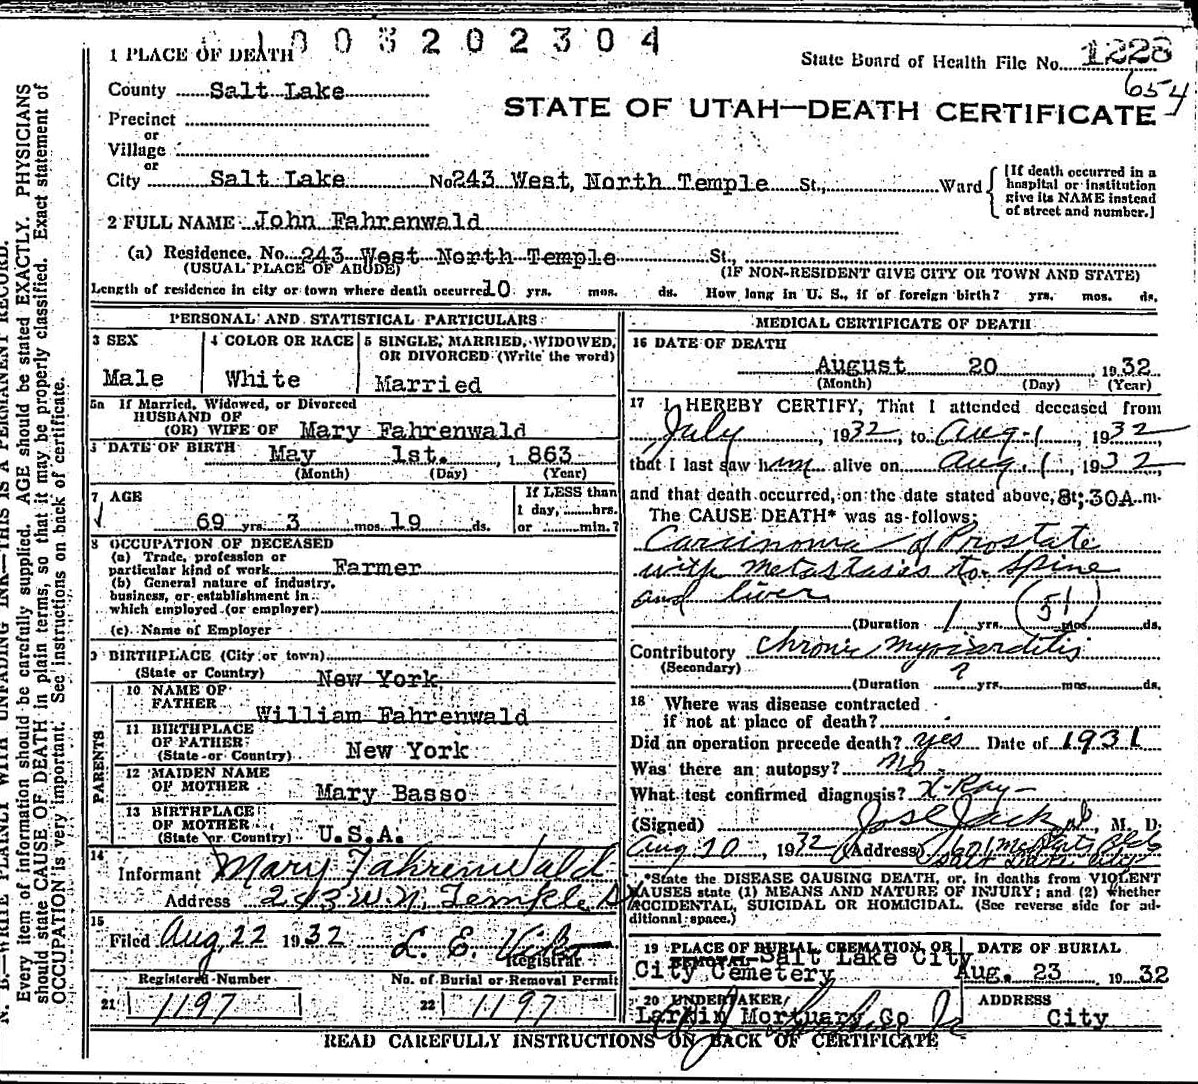 1003202304
1 PLACE OF DEATH
State Board of Health File No. 1223
654
County Salt Lake
STATE OF UTAH—DEATH CERTIFICATE
Precinct
or
Village
or
City Salt Lake No 243 West, North Temple St., Ward
[If death occurred in a
hospital or institution
give its NAME instead
of street and number.]
2 FULL NAME John Fahrenwald
(a) Residence. No. 243 West North Temple St.,
(USUAL PLACE OF ABODE) (IF NON-RESIDENT GIVE CITY OR TOWN AND STATE)
Length of residence in city or town where death occurred 10 yrs. mos. ds. How long in U. S., if of foreign birth? yrs. mos. ds.
PERSONAL AND STATISTICAL PARTICULARS
3 SEX 4 COLOR OR RACE 5 SINGLE, MARRIED, WIDOWED,
OR DIVORCED (Write the word)
Male White Married
5a If Married, Widowed, or Divorced
HUSBAND OF
(OR) WIFE OF Mary Fahrenwald
DATE OF BIRTH May 1st., 1863
(Month) (Day) (Year)
7 AGE
If LESS than
1 day, hrs.
69 yrs. 3 mos. 19 ds. or min.?
8 OCCUPATION OF DECEASED
(a) Trade, profession or
particular kind of work Farmer
(b) General nature of industry,
business, or establishment in
which employed (or employer)
(c) Name of Employer
9 BIRTHPLACE (City or town)
(State or Country) New York
PARENTS
10 NAME OF
FATHER William Fahrenwald
11 BIRTHPLACE
OF FATHER
(State or Country) New York
12 MAIDEN NAME
OF MOTHER Mary Basso
13 BIRTHPLACE
OF MOTHER
(State or Country) U.S.A.
14 Informant Mary Fahrenwald
Address 243 W. N. Temple St
15 Filed Aug 22 1932 L. E.
Registrar
Registered Number No. of Burial or Removal Permit
21 1197 22 1197
MEDICAL CERTIFICATE OF DEATH
16 DATE OF DEATH
August 20, 1932
(Month) (Day) (Year)
17 I HEREBY CERTIFY, That I attended deceased from
July, 1932, to Aug. 1, 1932
that I last saw him alive on Aug. 1, 1932
and that death occurred, on the date stated above, at 8;30A.m.
The CAUSE DEATH* was as follows:
Carcinoma of Prostate
with metastases to spine
and liver
(Duration 1 yrs. mos. ds.
51
Contributory Chronic myocarditis
(Secondary)
(Duration ? yrs. mos. ds.
18 Where was disease contracted
if not at place of death?
Did an operation precede death? yes Date of 1931
Was there an autopsy? no
What test confirmed diagnosis? X-Ray
(Signed) Jos E Jack, M. D.
Aug 20, 1932 (Address)
*State the DISEASE CAUSING DEATH, or, in deaths from VIOLENT
CAUSES state (1) MEANS AND NATURE OF INJURY; and (2) whether
ACCIDENTAL, SUICIDAL OR HOMICIDAL. (See reverse side for ad-
ditional space.)
19 PLACE OF BURIAL, CREMATION, OR
REMOVAL Salt Lake City
City Cemetery
DATE OF BURIAL
Aug. 23 1932
20 UNDERTAKER
Larkin Mortuary Co
ADDRESS
City
READ CAREFULLY INSTRUCTIONS ON BACK OF CERTIFICATE
N. B.—WRITE PLAINLY WITH UNFADING INK—THIS IS A PERMANENT RECORD.
Every item of information should be carefully supplied. AGE should be stated EXACTLY. PHYSICIANS
should state CAUSE OF DEATH in plain terms, so that it may be properly classified. Exact statement of
OCCUPATION is very important. See instructions on back of certificate.